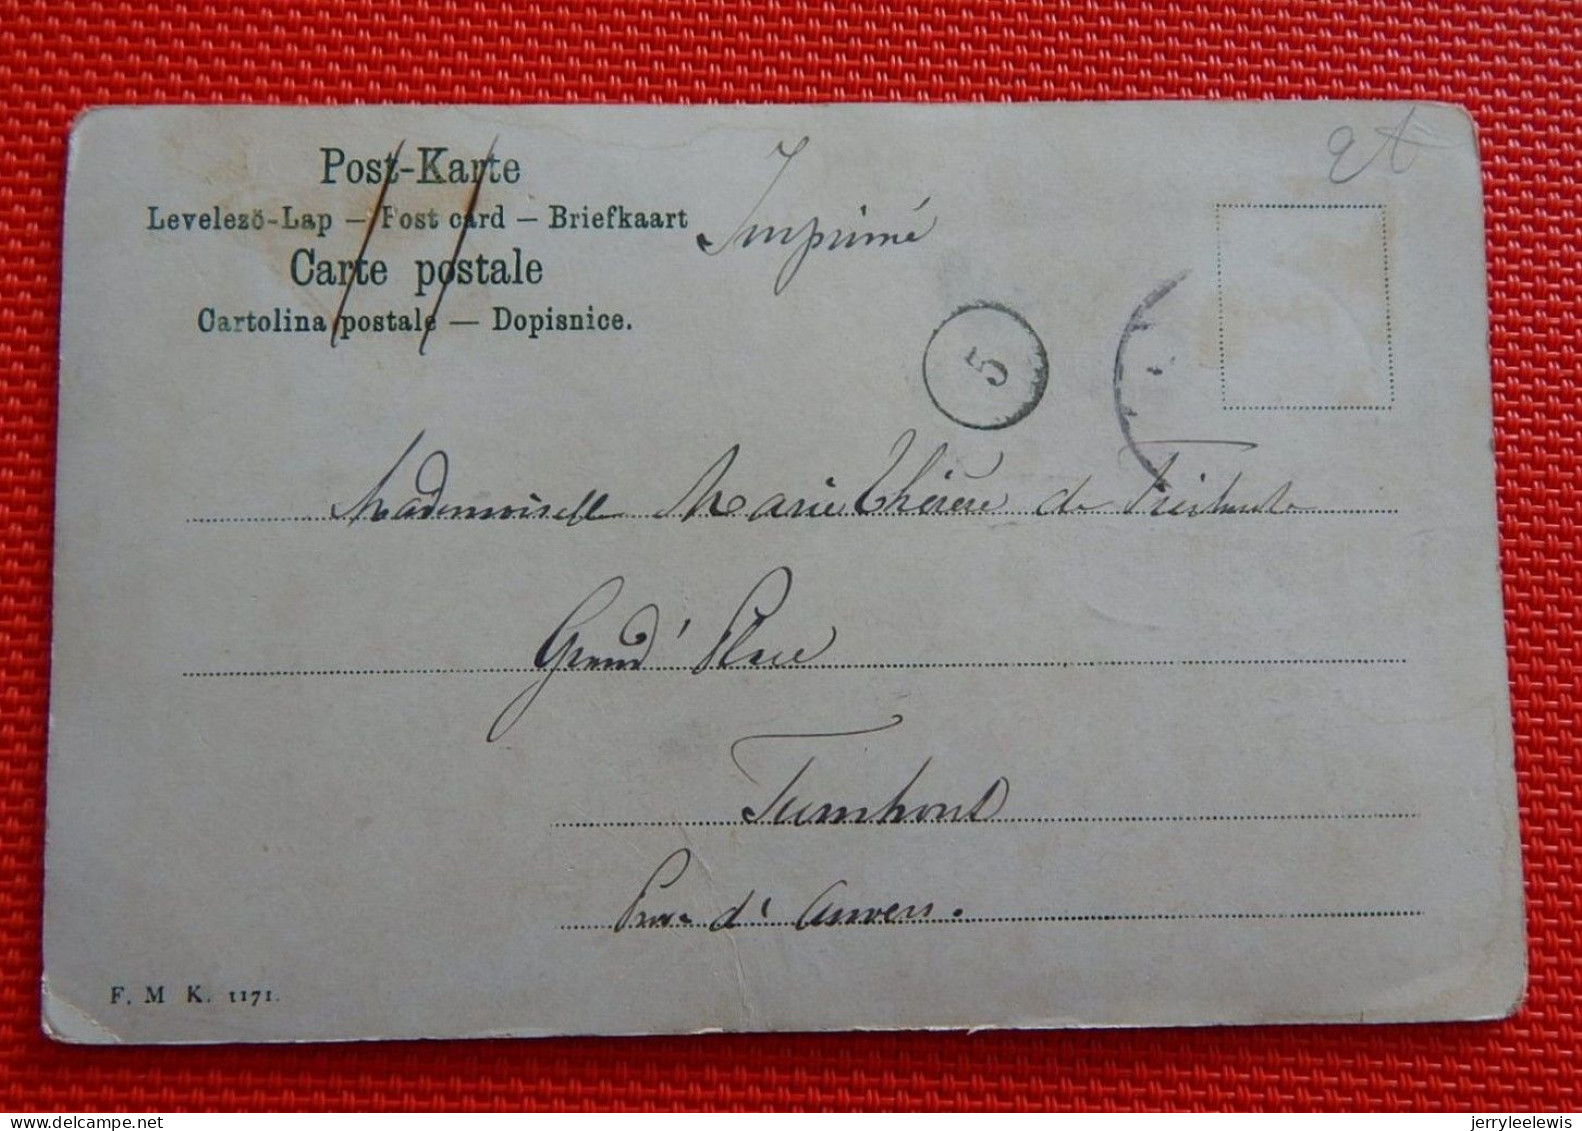 Post-Karte
Levelező-Lap – Post card – Briefkaart
Carte postale
Cartolina postale — Dopisnice.
Imprimé
5
Mademoiselle Marie Thérèse de
Grand' Place
Turnhout
Prov d' Anvers.
F. M K. 1171.
delcampe.net
jerryleelewis